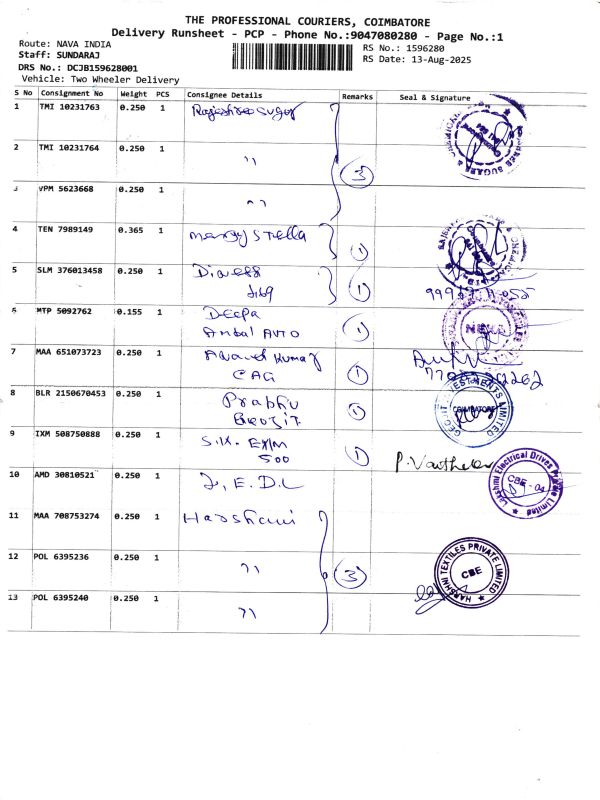 THE PROFESSIONAL COURIERS, COIMBATORE
Delivery Runsheet - PCP - Phone No.:9047080280 - Page No.:1
Route: NAVA INDIA
Staff: SUNDARAJ
DRS No.: DCJB159628001
Vehicle: Two Wheeler Delivery
RS No.: 1596280
RS Date: 13-Aug-2025
S No Consignment No Weight PCS Consignee Details Remarks Seal & Signature
1 TMI 10231763 0.250 1 Rajeshree sugar
2 TMI 10231764 0.250 1 ''
3 VPM 5623668 0.250 1 '' 3
4 TEN 7989149 0.365 1 Stella 1
5 SLM 376013458 0.250 1 1
6 MTP 5092762 0.155 1 Deepa
Ambal AUTO 1
NEHRU
7 MAA 651073723 0.250 1 Anand Kumar
CAG 1
8 BLR 2150670453 0.250 1 Prabhu
1
GEOJIT INVESTMENTS LIMITED
COIMBATORE
9 IXM 508750888 0.250 1 S.K. EXIM
500 1 P. Vasthela
10 AMD 30810521 0.250 1 L.E.D.L
Lakshmi Electrical Drives Private Limited
CBE - 04
11 MAA 708753274 0.250 1 Harshani
12 POL 6395236 0.250 1 '' 3
HARSHNI TEXTILES PRIVATE LIMITED
CBE
13 POL 6395240 0.250 1 ''